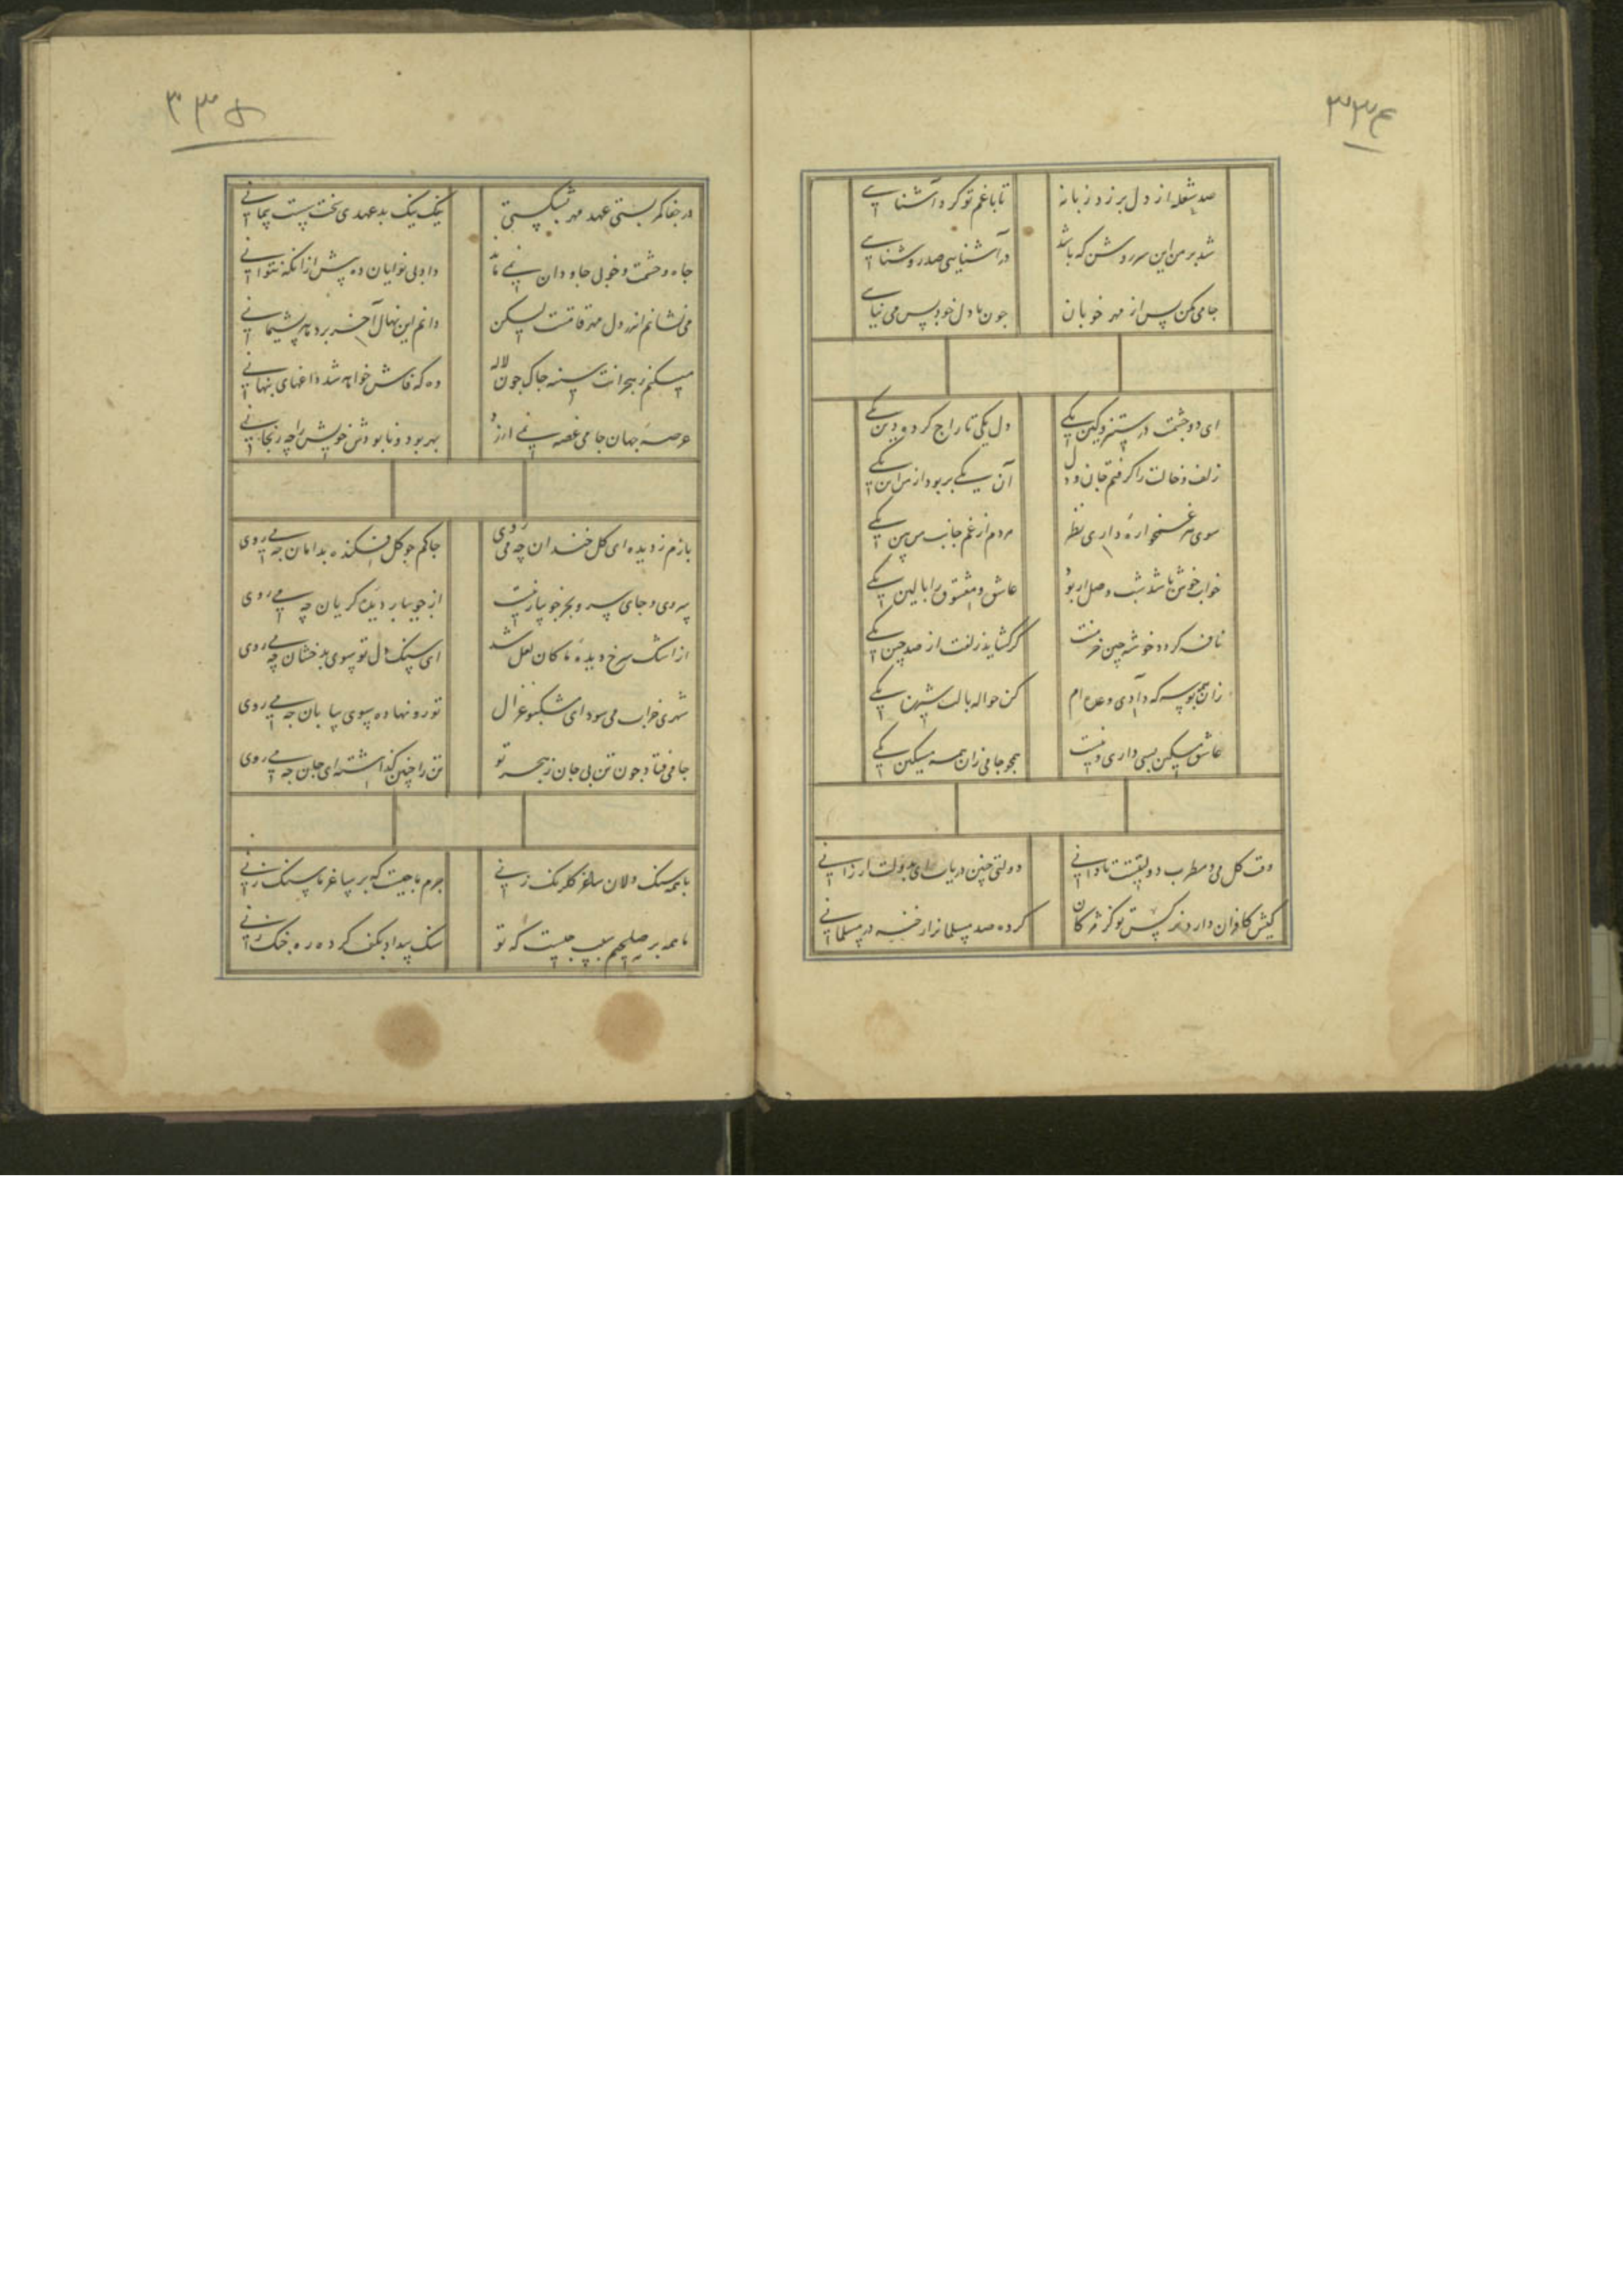 ۳۳۴
صد شعله از دل برزد زبانه تا با غم تو کرد آشنایی
شد بر من این سر روشن که باشد در آشنایی صد روشنایی
جامی مکن بس از مهر خوبان چون با دل خود بس می نیایی
ای دو چشمت در ستیز و کین یکی دل یکی تاراج کرده دین یکی
زلف و خالت را گرفتم جان و دل آن یکی بربود از من این یکی
سوی هر غمخواره داری نظر مردم از غم جانب من بین یکی
خواب خوش باشد شب وصل ار بود عاشق و معشوق را بالین یکی
نافه کردد خوشه چین خرمنت کر کشاید زلفت از صد چین یکی
زان همه بوسه که دادی وعده ام کن حواله با لب شیرین یکی
عاشق مسکین بسی داری و نیست همجو جامی زان همه مسکین یکی
وقت کل می و مطرب دولتیست تا دانی دولتی چنین دریاب ای بدولت ارزانی
کیش کافران دارد نرکس تو کز مژکان کرده صد مسلمانرا رخنه در مسلمانی
۳۳۵
در جفا کمر بستی عهد مهر بشکستی نیک نیک بدعهدی سخت سست پیمانی
جاه و حشمت و خوبی جاودان نمی ماند داد بی نوایان ده پیش از آنکه نتوانی
می نشانم اندر دل مهر قامتت لیکن دانم این نهال آخر بر دهد پشیمانی
میکنم ز هجرانت سینه جاک جون لاله وه که فاش خواهد شد داغهای پنهانی
عرصه جهان جامی غصه نمی ارزد بهر بود و نابودش خویش را چه رنجانی
بازم ز دیده ای کل خندان چه می روی جاکم جو کل فکنده بدامان چه می روی
سروی و جای سرو بجز جویبار نیست از جویبار دیده کریان چه می روی
از اشک سرخ دیده ما کان لعل شد ای سنک دل تو سوی بدخشان چه می روی
شهری خراب می شود ای مشکبو غزال تو رو نهاده سوی بیابان چه می روی
جامی فتاد جون تن بی جان ز هجر تو تن را چنین کذاشته ای جان چه می روی
با همه سنک دلان ساغر کلرنک زنی جرم ما چیست که بر ساغر ما سنک زنی
با همه بر صلحیم سبب چیست که تو سنک بیداد بکف کرده ره جنک زنی